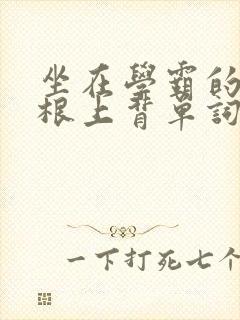 坐在學霸的
根上背單詞
一下打死七个